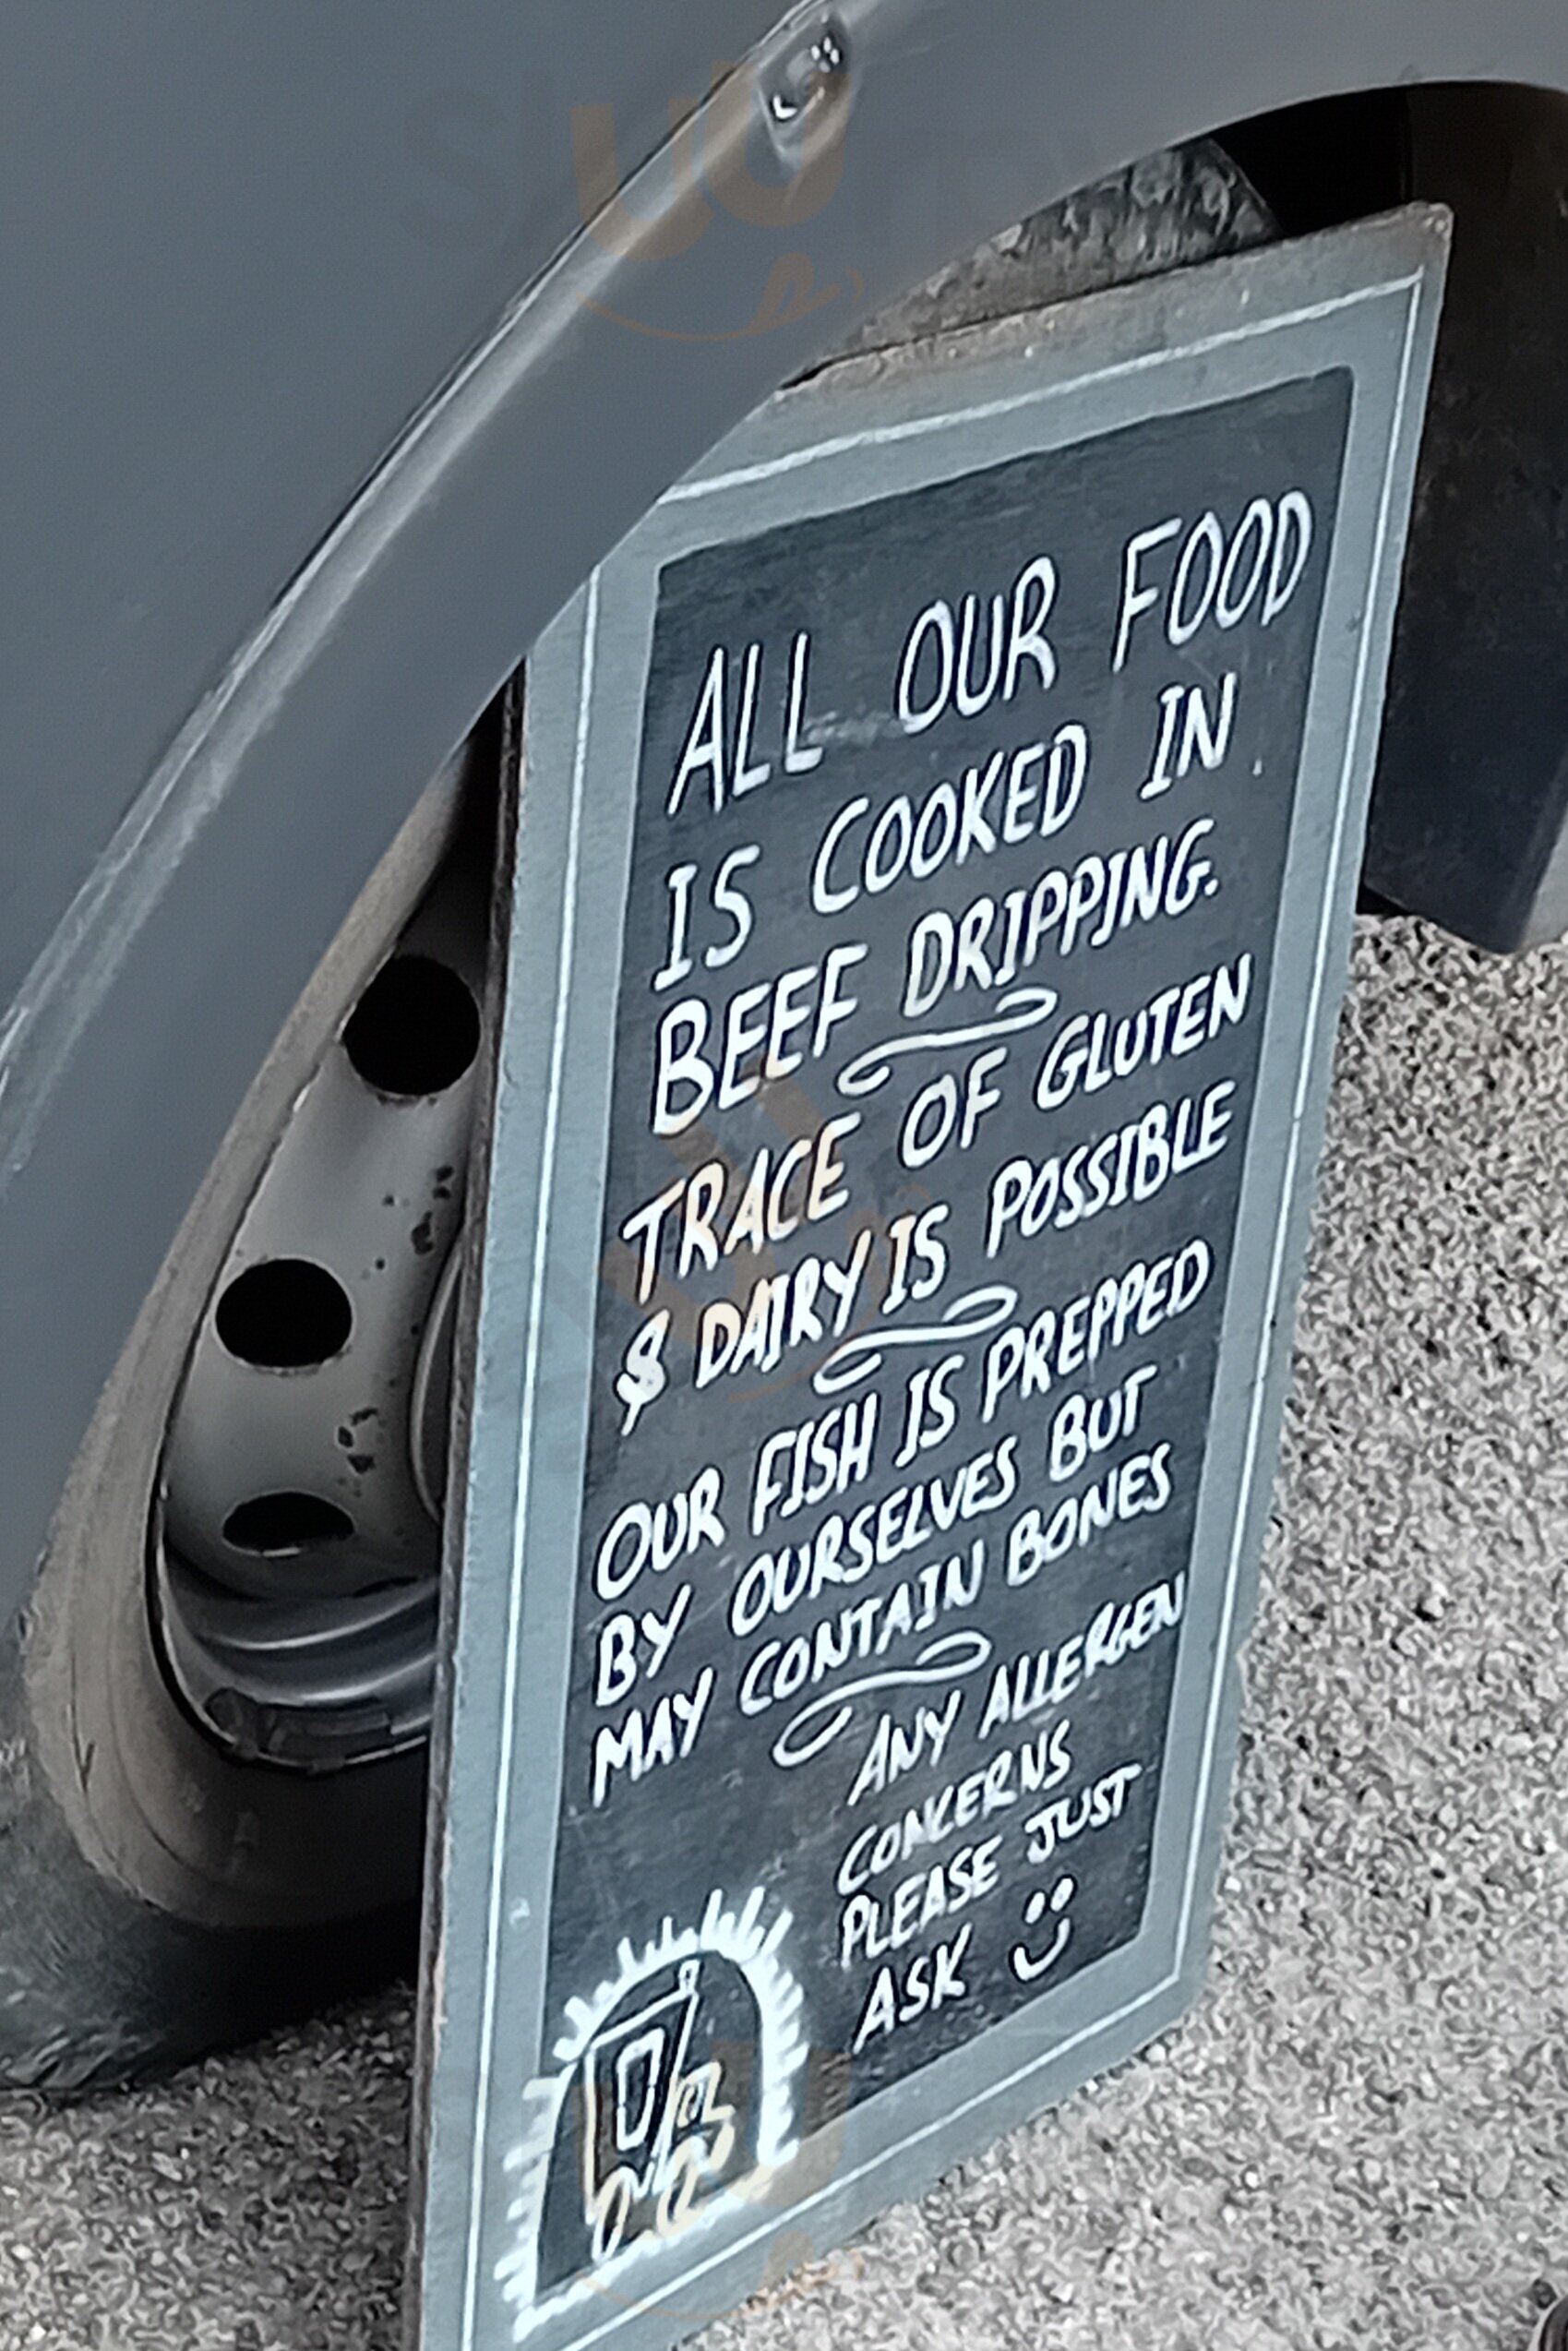 ALL OUR FOOD
IS COOKED IN
BEEF DRIPPING.
TRACE OF GLUTEN
& DAIRY IS POSSIBLE
OUR FISH IS PREPPED
BY OURSELVES BUT
MAY CONTAIN BONES
ANY ALLERGEN
CONCERNS
PLEASE JUST
ASK